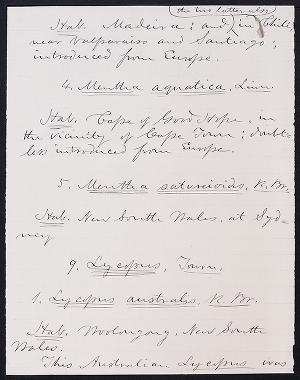 the two latter also
Hab. Madeira; and, in Chile,
near Valparaiso and Santiago;
introduced from Europe.
4. Mentha aquatica, Linn.
Hab. Cape of Good Hope, in
the vicinity of Cape Town; doubt-
less introduced from Europe.
5. Mentha satureioides, R. Br.
Hab. New South Wales, at Syd-
ney
9. Lycopus, Tourn.
1. Lycopus australis, R. Br.
Hab. Woolongong, New South
Wales.
This Australian Lycopus was